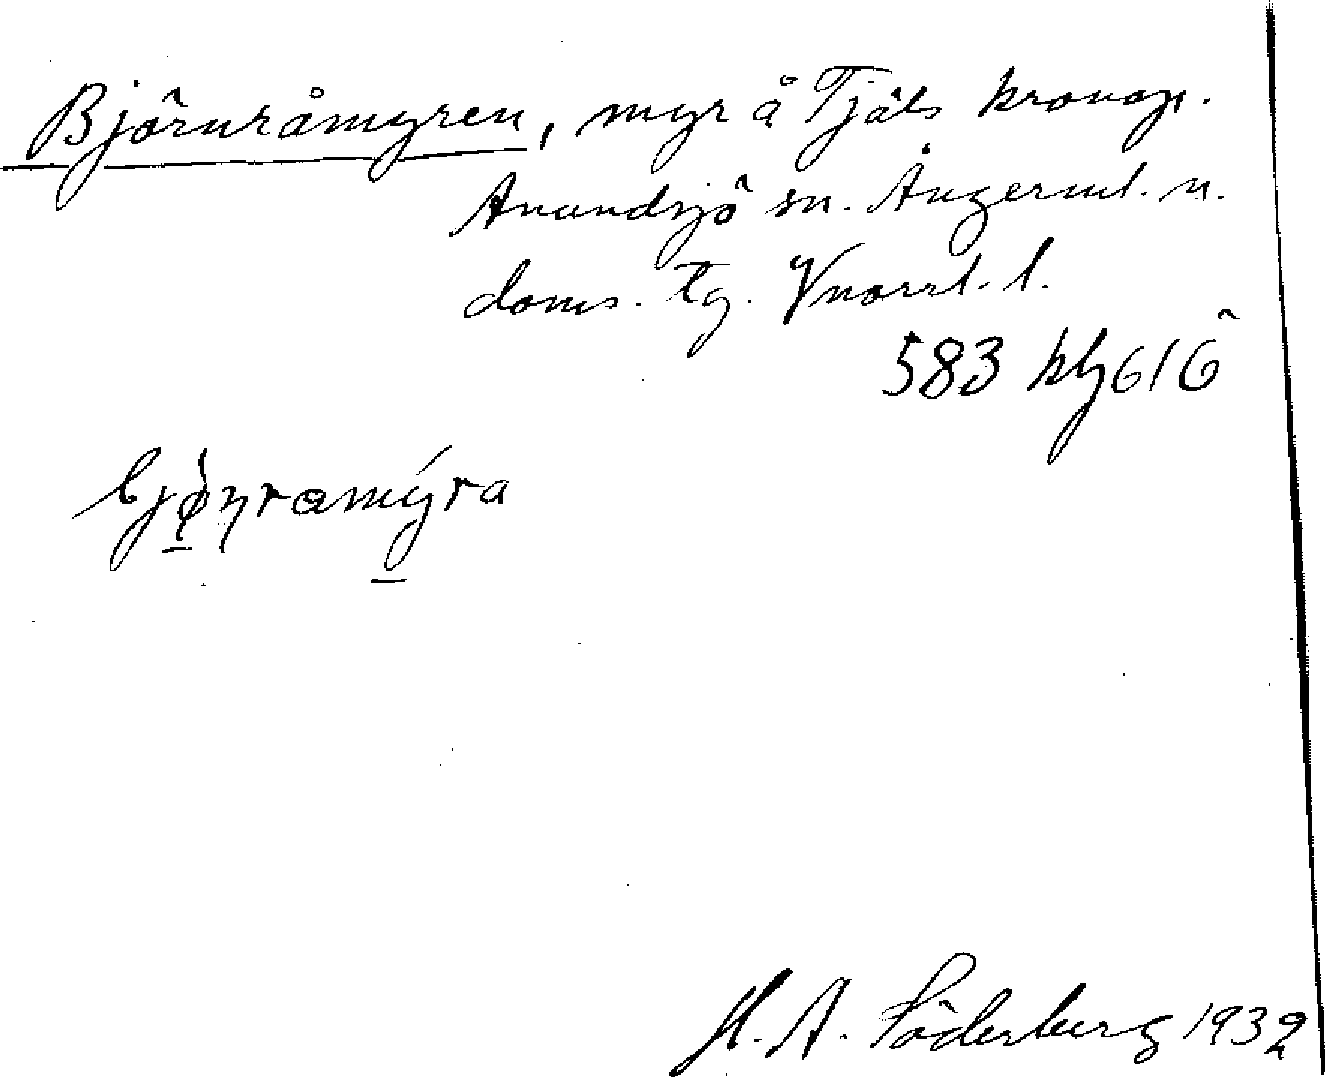 Björnråmyren, myr å Tjäls kronop.
Anundsjö sn. Ångerml. n.
doms. tg. Vnorrl. l.
583 hg 616
bjö̱ṇramý̱ra
H. A. Söderberg 1932